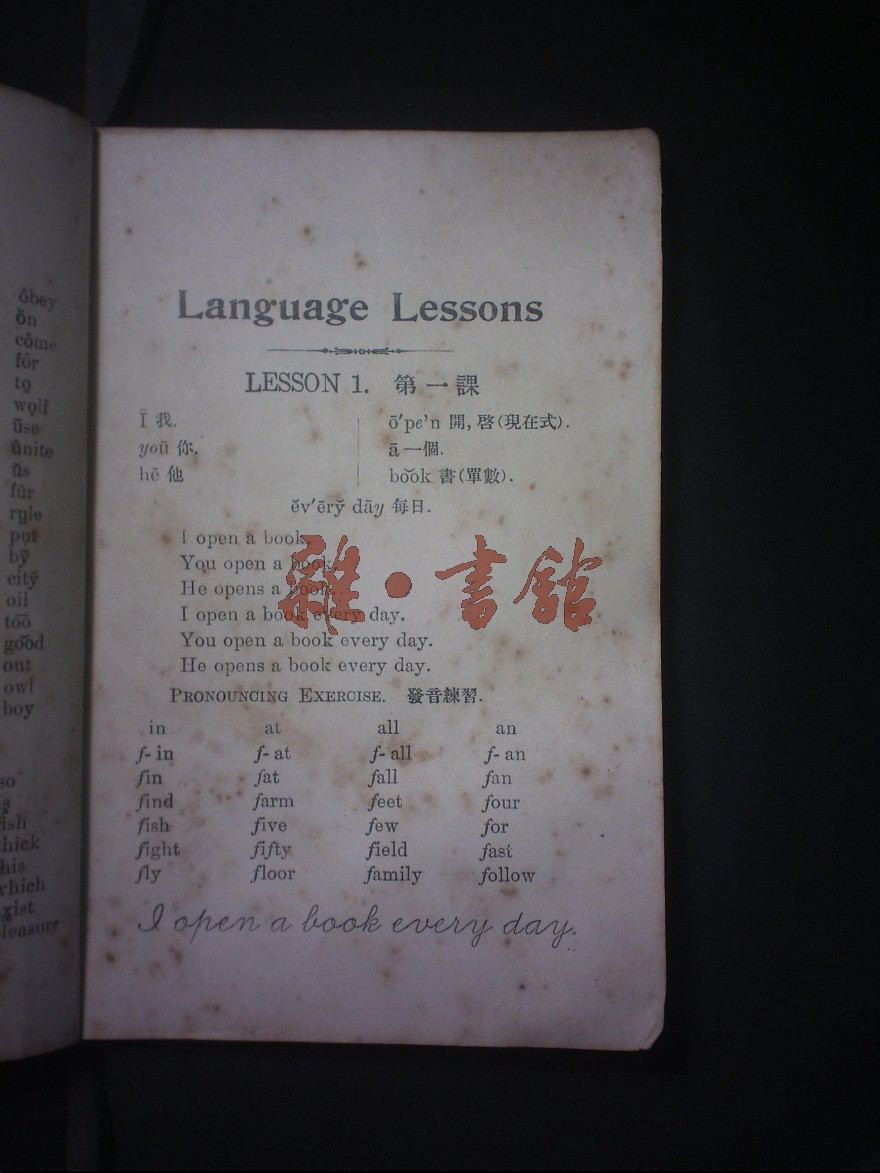 ôbey
ŏn
côme
fôr
to̤
wo̤lf
ūse
ûnite
ŭs
fûr
rṳle
pṳt
bȳ
cĭtў
oil
tōō
go͝od
out
owl
boy
so
fish
thick
this
which
exist
pleasure
Language Lessons
LESSON 1. 第一課
Ī 我.
yoū 你.
hē 他
ō′pe'n 開, 啓(現在式).
ā 一個.
bo͝ok 書(單數).
ĕv′ērў dāy 每日.
I open a book.
You open a book.
He opens a book.
I open a book every day.
You open a book every day.
He opens a book every day.
PRONOUNCING EXERCISE. 發音練習.
in at all an
f- in f- at f- all f- an
fin fat fall fan
find farm feet four
fish five few for
fight fifty field fast
fly floor family follow
I open a book every day.
雜·書館